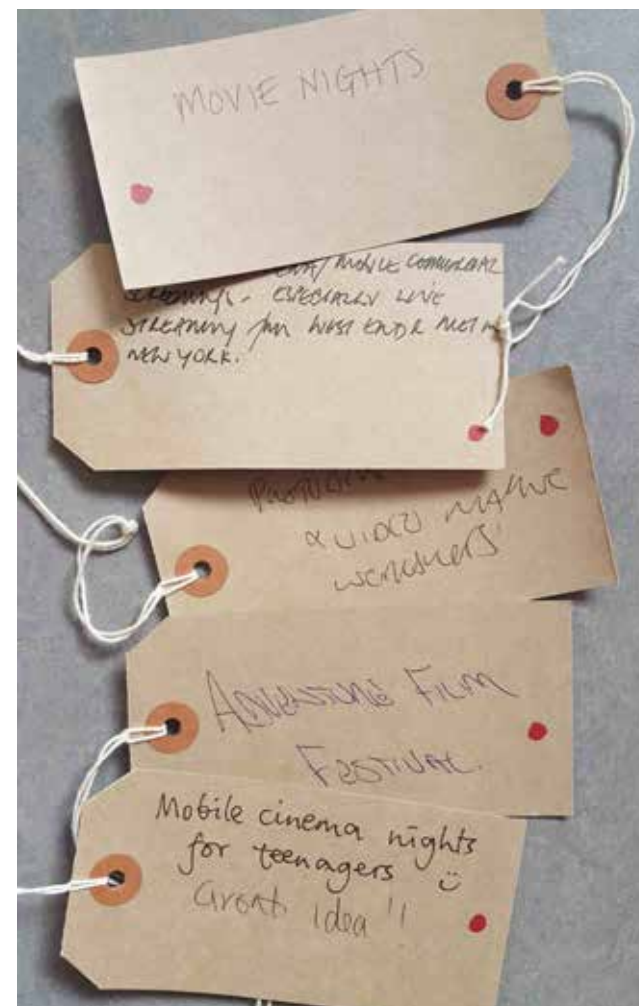 MOVIE NIGHTS
MOBILE COMMERCIAL
SCREENINGS - ESPECIALLY LIVE
STREAMING WEST END &
NEW YORK.
& VIDEO MAKING
WORKSHOPS
ADVENTURE FILM
FESTIVAL.
Mobile cinema nights
for teenagers
Great idea!!